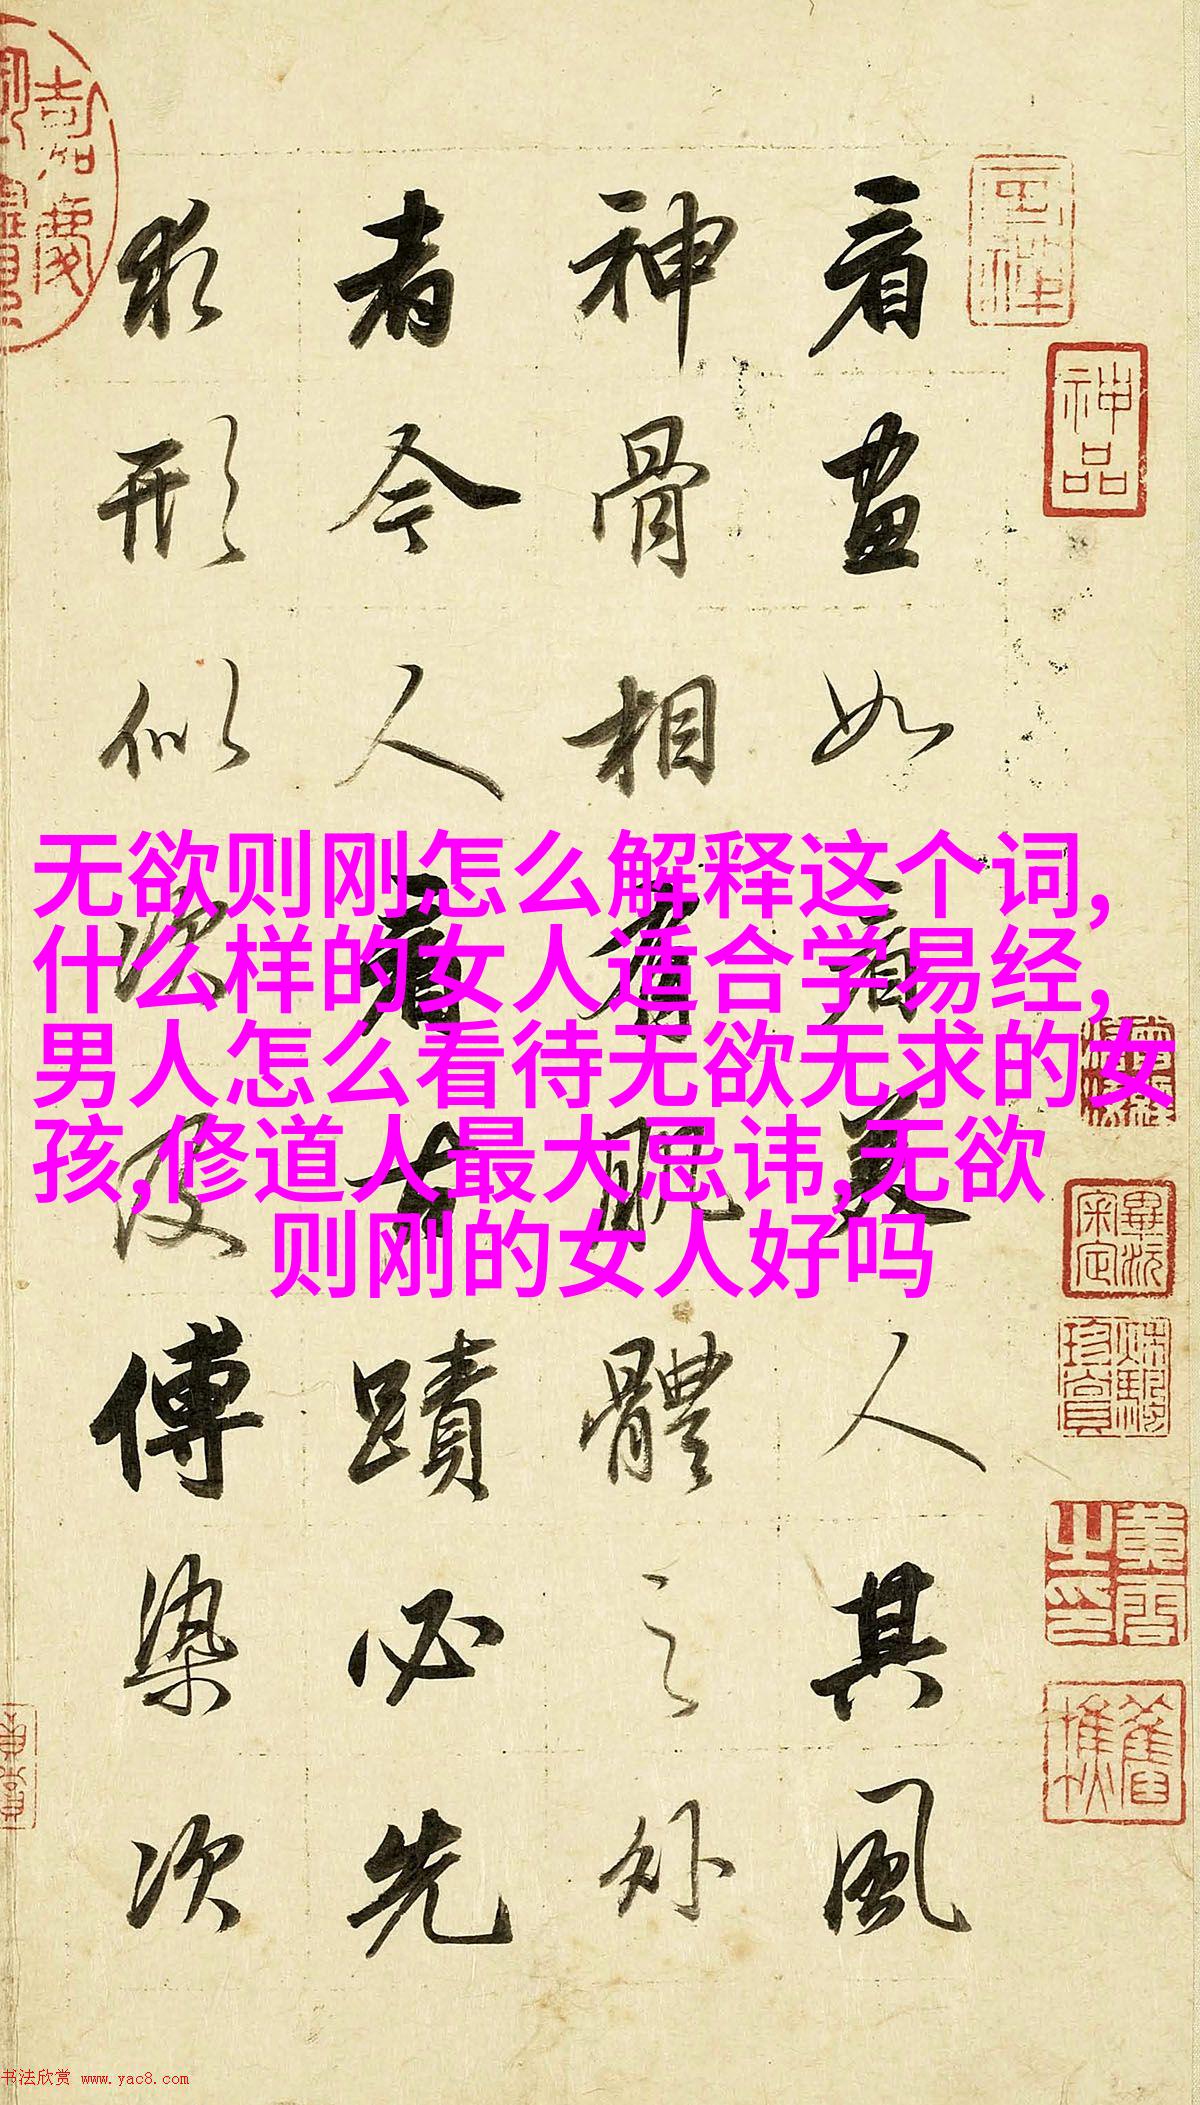 看畫如看美人其風
神骨相有肌體之外
者今人看古蹟必先
求形似次及傅染次
无欲则刚怎么解释这个词,
什么样的女人适合学易经,
男人怎么看待无欲无求的女
孩,修道人最大忌讳,无欲
则刚的女人好吗
神品
嘉慶
书法欣赏 www.yac8.com